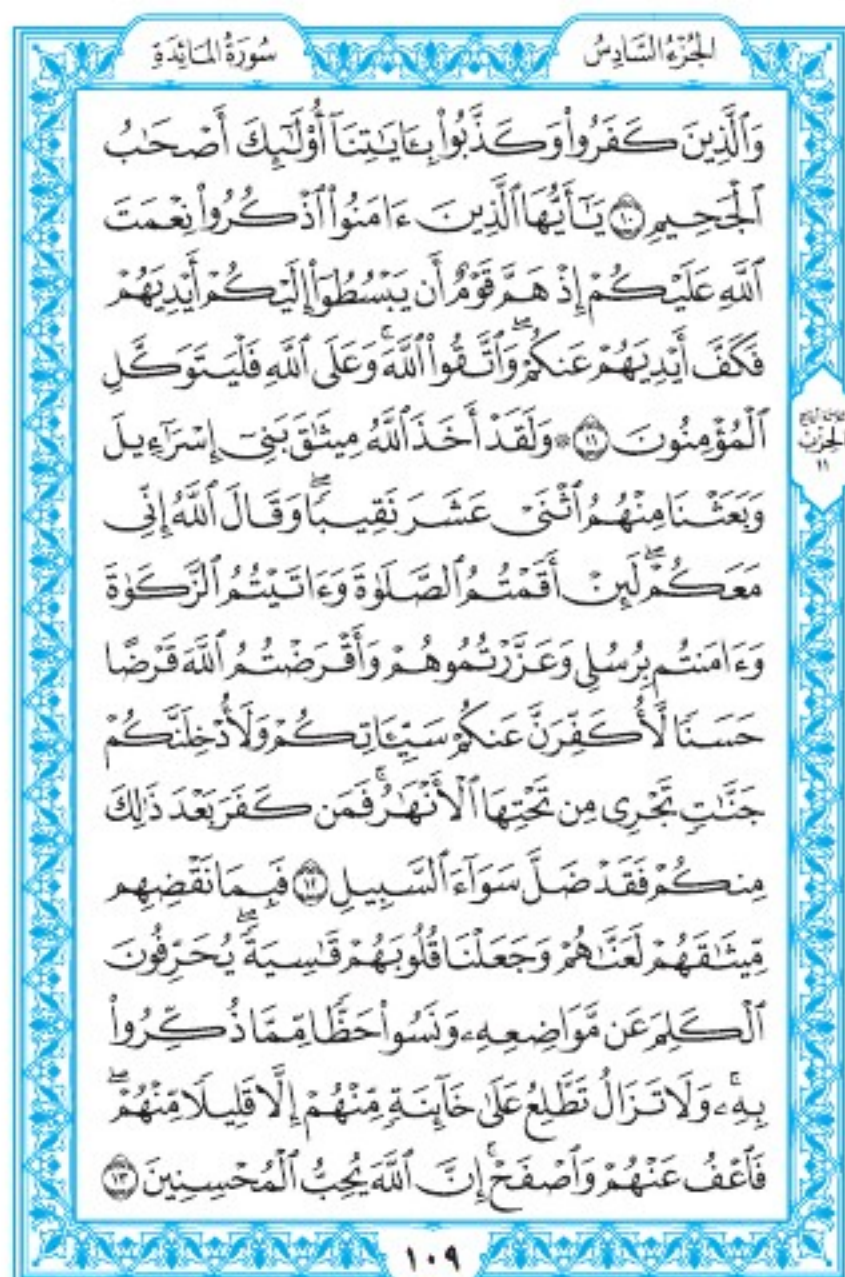 الجُزْءُ السَّادِسُ
سُورَةُ المَائِدَةِ
وَٱلَّذِينَ كَفَرُواْ وَكَذَّبُواْ بِـَٔايَٰتِنَآ أُوْلَٰٓئِكَ أَصۡحَٰبُ
ٱلۡجَحِيمِ ١٠ يَٰٓأَيُّهَا ٱلَّذِينَ ءَامَنُواْ ٱذۡكُرُواْ نِعۡمَتَ
ٱللَّهِ عَلَيۡكُمۡ إِذۡ هَمَّ قَوۡمٌ أَن يَبۡسُطُوٓاْ إِلَيۡكُمۡ أَيۡدِيَهُمۡ
فَكَفَّ أَيۡدِيَهُمۡ عَنكُمۡۖ وَٱتَّقُواْ ٱللَّهَۚ وَعَلَى ٱللَّهِ فَلۡيَتَوَكَّلِ
ٱلۡمُؤۡمِنُونَ ١١ ۞ وَلَقَدۡ أَخَذَ ٱللَّهُ مِيثَٰقَ بَنِيٓ إِسۡرَٰٓءِيلَ
وَبَعَثۡنَا مِنۡهُمُ ٱثۡنَيۡ عَشَرَ نَقِيبٗاۖ وَقَالَ ٱللَّهُ إِنِّي
مَعَكُمۡۖ لَئِنۡ أَقَمۡتُمُ ٱلصَّلَوٰةَ وَءَاتَيۡتُمُ ٱلزَّكَوٰةَ
وَءَامَنتُم بِرُسُلِي وَعَزَّرۡتُمُوهُمۡ وَأَقۡرَضۡتُمُ ٱللَّهَ قَرۡضًا
حَسَنٗا لَّأُكَفِّرَنَّ عَنكُمۡ سَيِّـَٔاتِكُمۡ وَلَأُدۡخِلَنَّكُمۡ
جَنَّٰتٖ تَجۡرِي مِن تَحۡتِهَا ٱلۡأَنۡهَٰرُۚ فَمَن كَفَرَ بَعۡدَ ذَٰلِكَ
مِنكُمۡ فَقَدۡ ضَلَّ سَوَآءَ ٱلسَّبِيلِ ١٢ فَبِمَا نَقۡضِهِم
مِّيثَٰقَهُمۡ لَعَنَّٰهُمۡ وَجَعَلۡنَا قُلُوبَهُمۡ قَٰسِيَةٗۖ يُحَرِّفُونَ
ٱلۡكَلِمَ عَن مَّوَاضِعِهِۦ وَنَسُواْ حَظّٗا مِّمَّا ذُكِّرُواْ
بِهِۦۚ وَلَا تَزَالُ تَطَّلِعُ عَلَىٰ خَآئِنَةٖ مِّنۡهُمۡ إِلَّا قَلِيلٗا مِّنۡهُمۡۖ
فَٱعۡفُ عَنۡهُمۡ وَٱصۡفَحۡۚ إِنَّ ٱللَّهَ يُحِبُّ ٱلۡمُحۡسِنِينَ ١٣
الحِزْبُ
١١
١٠٩